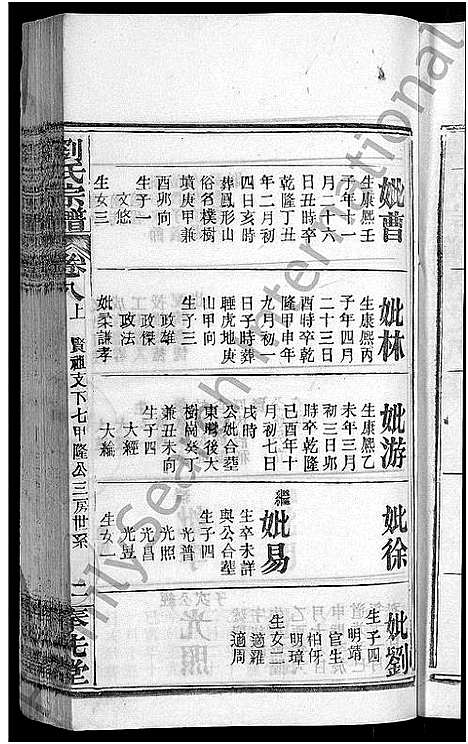 妣曹
生康熙壬
子年十一
月二十六
日丑時卒
乾隆丁丑
年二月初
四日亥時
葬鳳形山
俗名樸樹
墳庚甲兼
酉卯向
生子一
文悠
生女三
妣林
生康熙丙
子年四月
二十三日
酉時卒乾
隆甲申年
九月初一
日子時葬
睡虎地庚
山甲向
生子三
政雄
政傑
政法
妣柔謙孝
妣游
生康熙乙
未年三月
初三日卯
時卒乾隆
己酉年十
月初七日
戌時
公妣合墓
東腸後大
樹崗癸丁
兼丑未向
生子四
大經
大綸
妣徐
繼妣易
生卒未詳
與公合墓
生子四
光普
光照
光昌
光㒷
生女一
妣劉
生子四
明靖
官生
柏伢
明璋
生女二
適羅
適周
劉氏宗譜
卷八上
賢祖文下七甲隆公三房世系
二
奉先堂
FamilySearch International